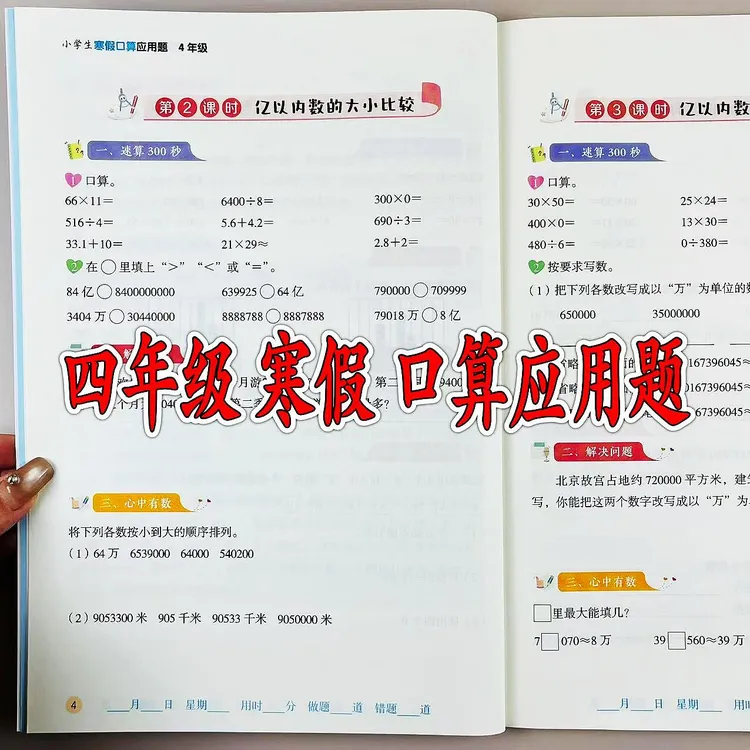 小学生寒假口算应用题 4年级
第2课时 亿以内数的大小比较
一、速算300秒
1 口算。
66×11= 6400÷8= 300×0=
516÷4= 5.6+4.2= 690÷3=
33.1+10= 21×29≈ 2.8+2=
2 在○里填上“>”“<”或“=”。
84亿○8400000000 639925○64亿 790000○709999
3404万○30440000 8888788○8887888 79018万○8亿
四年级 寒假 口算应用题
三、心中有数
将下列各数按从小到大的顺序排列。
(1)64万 6539000 64000 540200
(2)9053300米 905千米 90533千米 9050000米
4 月 日 星期 用时 分 做题 道 错题 道
第3课时 亿以内数
一、速算300秒
1 口算。
30×50= 25×24=
400×0= 13×30=
480÷6= 0÷380=
2 按要求写数。
(1)把下列各数改写成以“万”为单位的数
650000 35000000
167396045≈
167396045≈
二、解决问题
北京故宫占地约720000平方米,建
写,你能把这两个数字改写成以“万”为
三、心中有数
□里最大能填几?
7□070≈8万 39□560≈39万
月 日 星期 用时